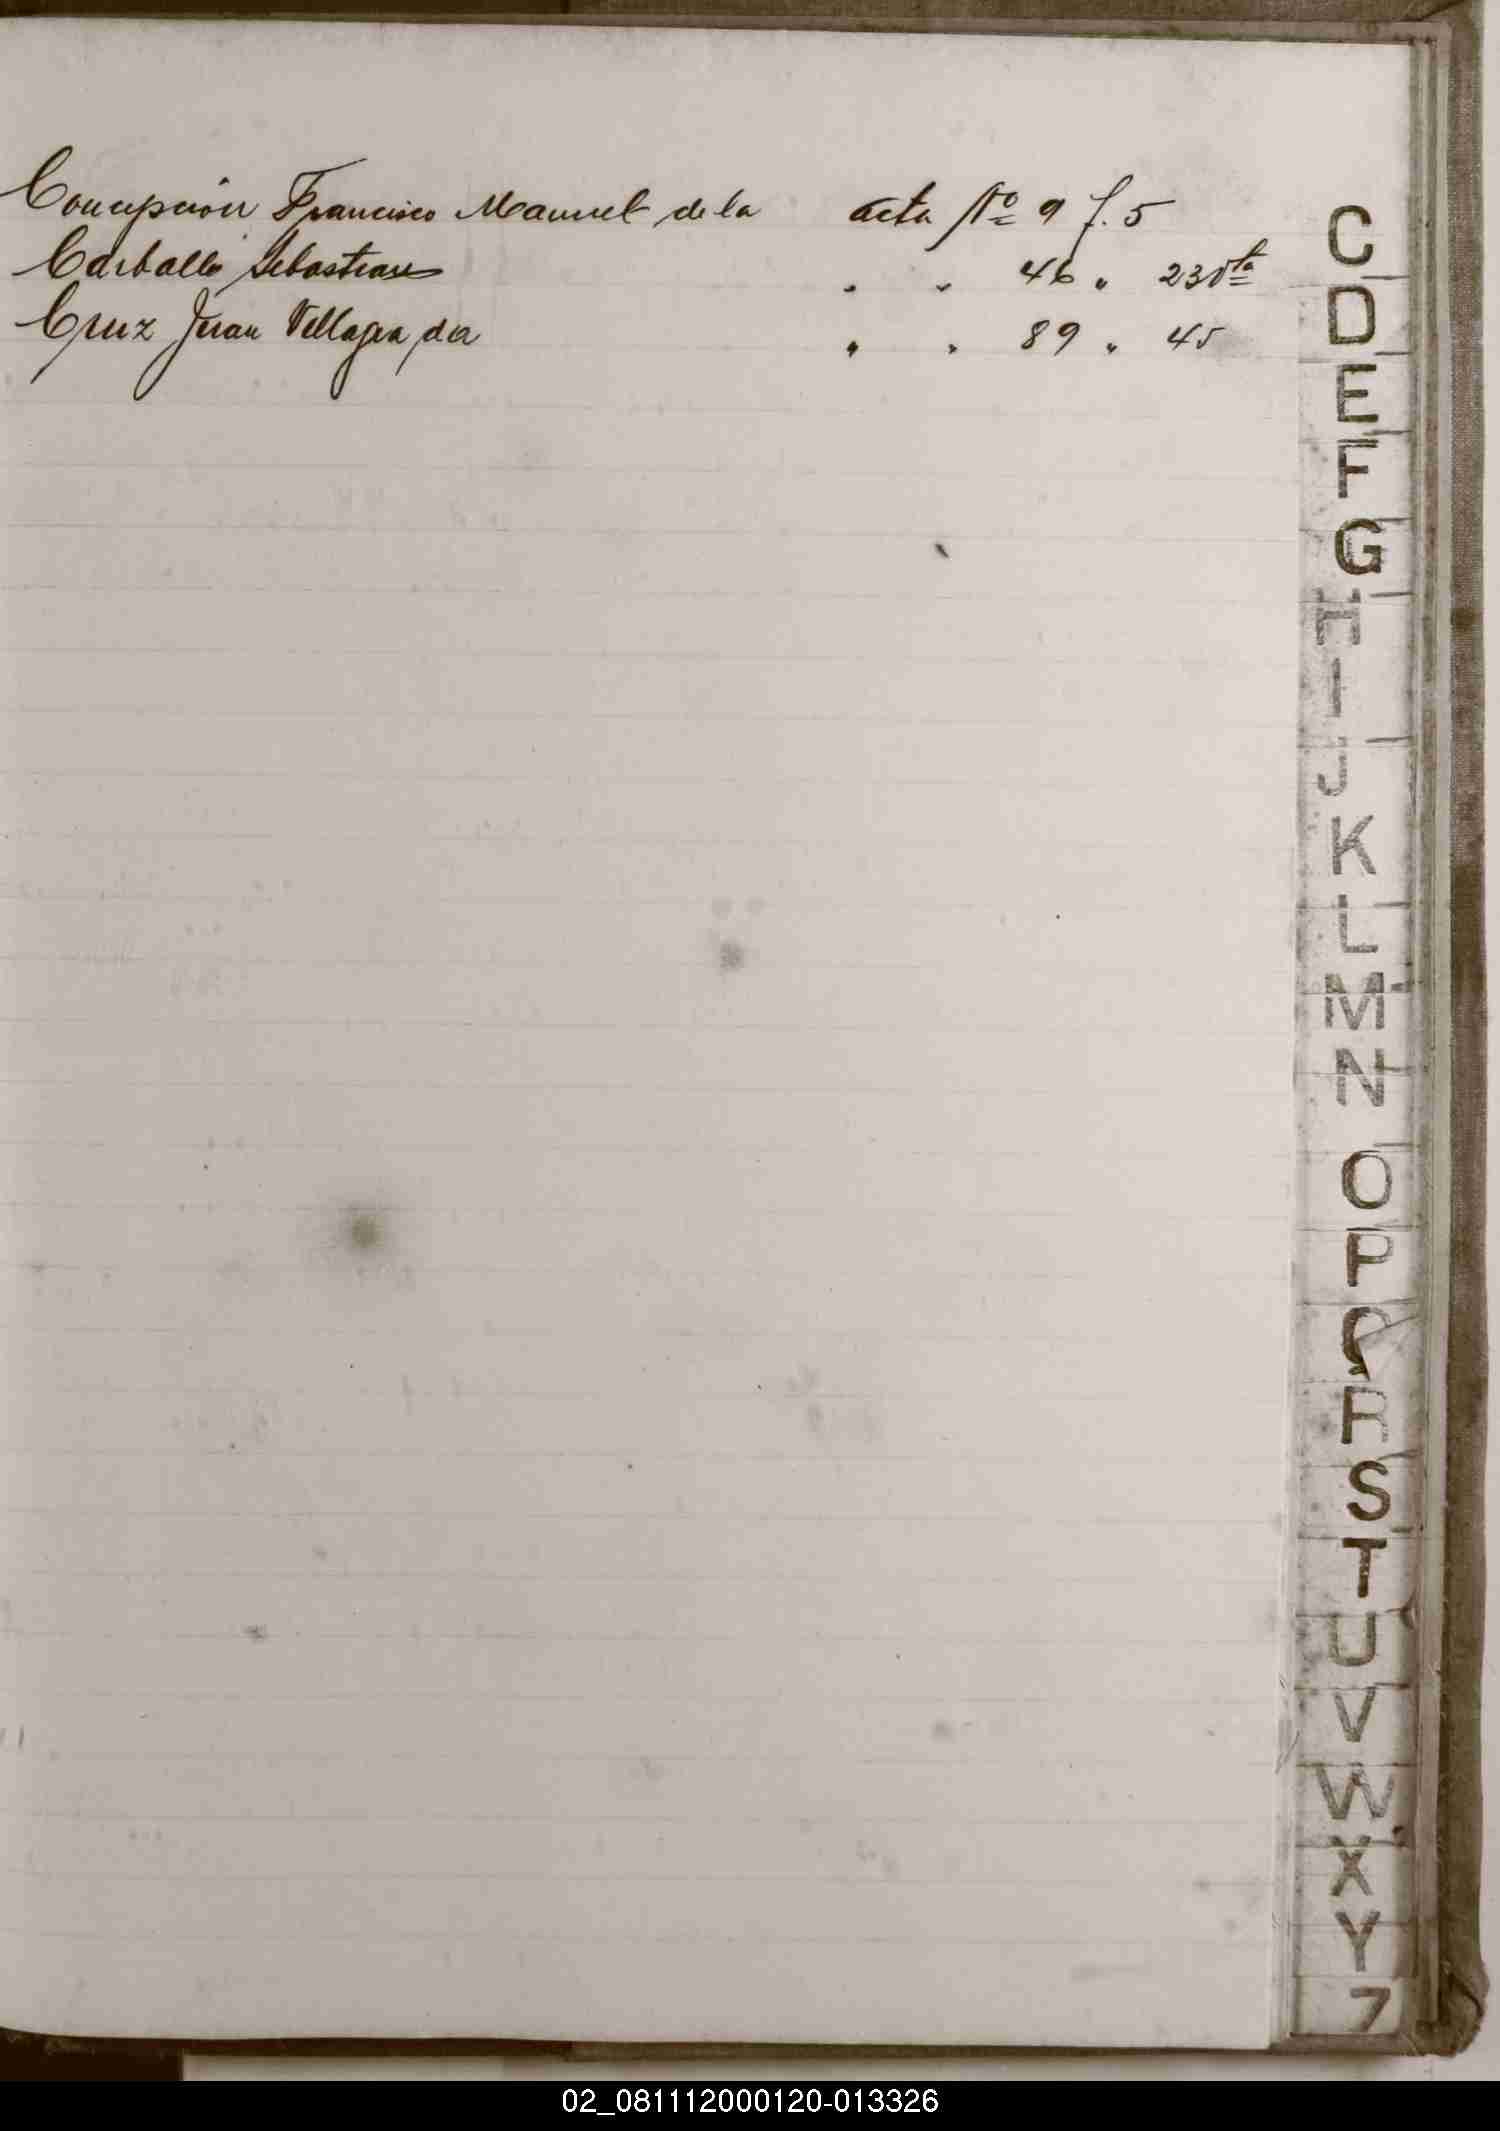 Concepción Francisco Manuel de la acta Nº 9 f. 5
Carballo Sebastian " " 46 " 23 vta
Cruz Juan Villagra da " " 89 " 45
C
D
E
F
G
H
I
J
K
L
M
N
O
P
Q
R
S
T
U
V
W
X
Y
Z
02_081112000120-013326